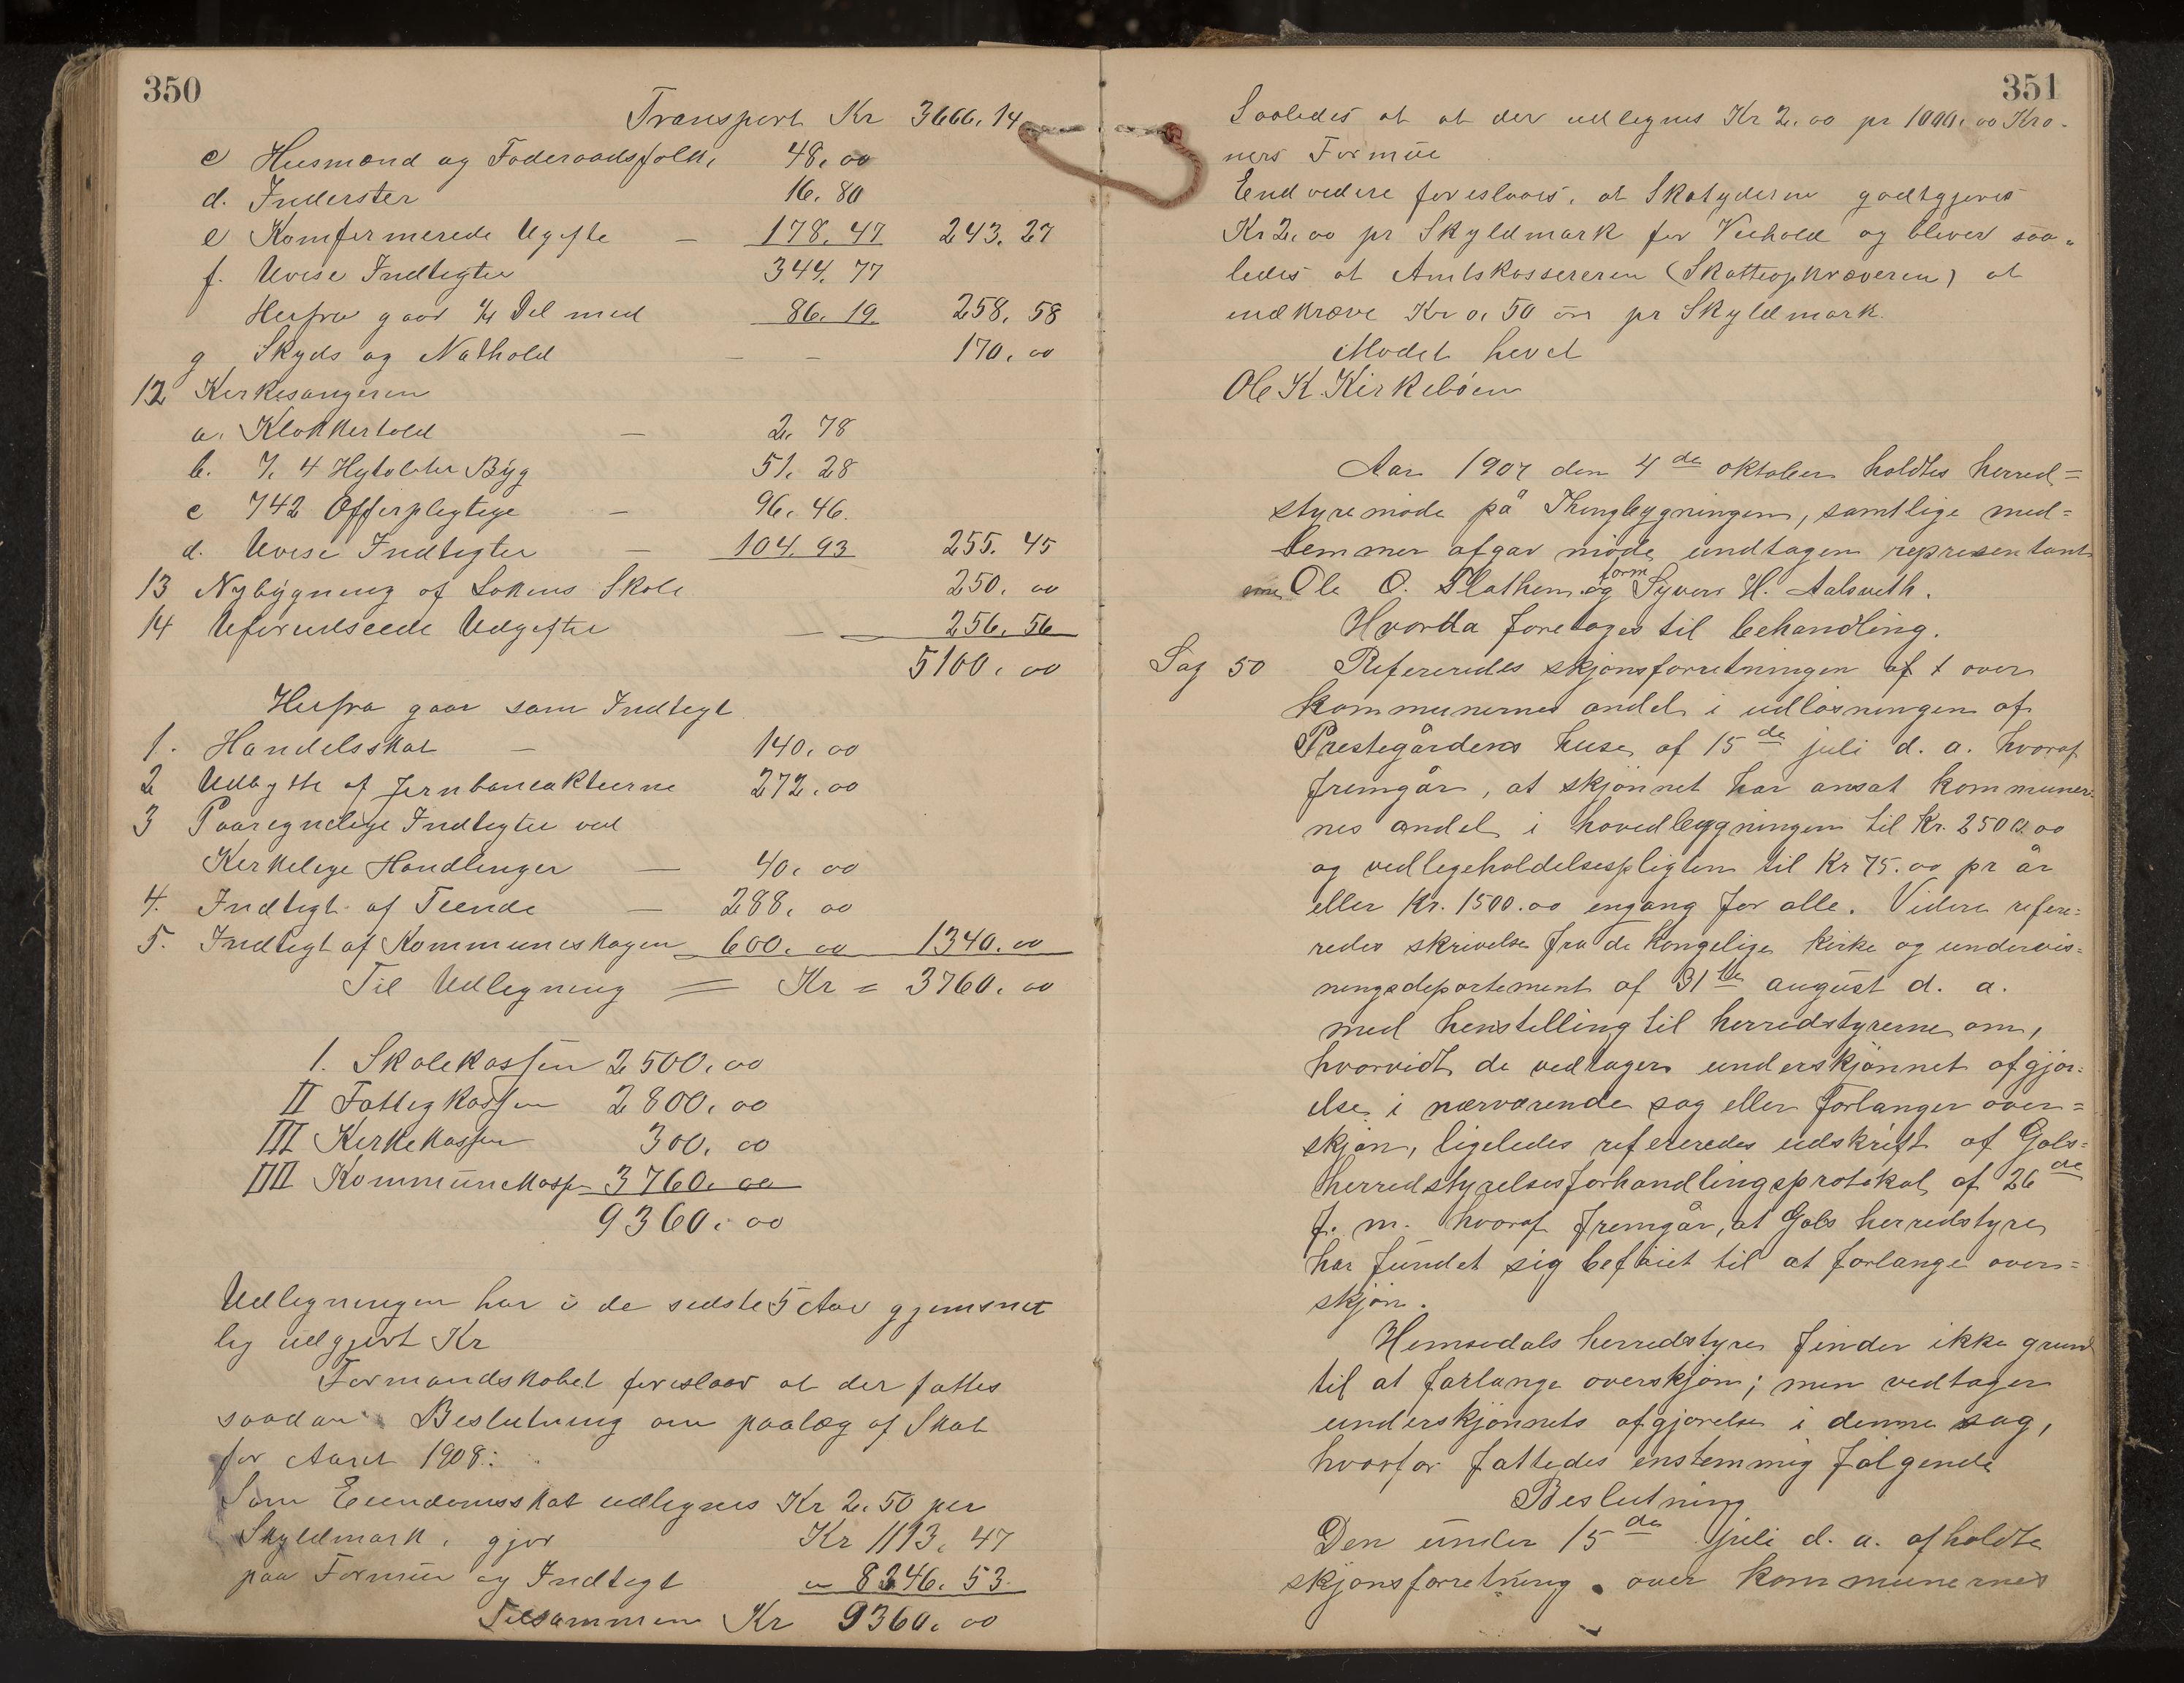 350
Transport Kr 3666.14
c Husmænd og Føderaadsfolk, 48.00
d. Inderster 16.80
e Komfermerede Ugifte — 178.47 243.27
f. Uvise Indtegter 344.77
Herfra gaar 1/4 Del med 86.19. 258.58
g Skyds og Nathold — — 170.00
12 Kirkesangeren
a. Klokkertold — 2.78
b. 7.4 Hytolater Byg 51.28
c 742 Offerpligtige — 96.46.
d. Uvise Indtegter — 104.93 255.45
13 Nybygning af Lokens Skole 250.00
14 Uforudseede Udgifter — 256.56
5100.00
Herfra gaar som Indtegt
1. Handelsskat — 140.00
2 Udbytte af Jernbaneaktierne 272.00
3 Paaregnelige Indtegter ved
Kirkelige Handlinger — 40.00
4. Indtegt af Tiende — 288.00
5. Indtegt af Kommuneskogen 600.00 1340.00
Til Udligning = Kr = 3760.00
I. Skolekassen 2500.00
II Fattigkassen 2800.00
III Kirkekassen 300.00
IIII Kommünekass 3760.00
9360.00
Udligningen har i de sidste 5 Aar gjemsnit
lig udgjort Kr
Formandskabet foreslaar at der fattes
saadan Beslutning om paalæg af Skat
for Aaret 1908:
Som Eiendomsskat udlignes Kr 2.50 per
Skyldmark, gjør Kr 1113.47
paa Formüe og Indtegt " 8246.53.
Tilsammen Kr 9360.00
351
Saaledes at at der udlignes Kr 2.00 pr 1000.00 Kro-
ners Formüe
Endvidere foreslaaes, at Skatyderne godtgjøres
Kr 2.00 pr Skyldmark for Veihold og bliver saa-
ledes at Amtskassereren (Skatteopkræveren) at
indkræve Kr 0.50 øre pr Skyldmark.
Mødet hevet
Ole K. Kirkebøen
Aar 1907 den 4de oktober holdtes herred=
styremøde på Thingbygningen, samtlige med=
lemmer afgav møde undtagen representant
erne Ole O. Flathen og form Syver H. Aalsveth.
Hvorda foretages til behandling.
Sag 50 Refereredes skjønsforretningen af t over
kommunernes andel i udløsningen af
Prestegårdens huse af 15de juli d. a. hvoraf
fremgår, at skjønnet har ansat kommuner-
nes andel i hovedbygningen til Kr. 2500.00
og vedlegeholdelsespligten til Kr 75.00 pr år
eller Kr. 1500.00 engang for alle. Videre refere=
redes skrivelse fra de kongelige kirke og undervis=
ningsdepartement af 31te august d. a.
med henstelling til herredstyrerne om,
hvorvidt de vedtager underskjønnet afgjør-
else i nærværende sag eller forlanger over=
skjøn, ligeledes refereredes udskrift af Gols=
herredstyrelsesforhandlingsprotokol af 26de
f. m. hvoraf fremgår, at Gols herredstyre
har fündet sig beføiet til at forlange over=
skjøn.
Hemsedals herredstyre finder ikke grund
til at forlange overskjøn; men vedtager
underskjønnets afgjørelse i denne sag,
hvorfor fattedes enstemmig følgende
Beslutning
Den ünder 15de juli d. a. afholdte
skjønsforretning over kommunernes